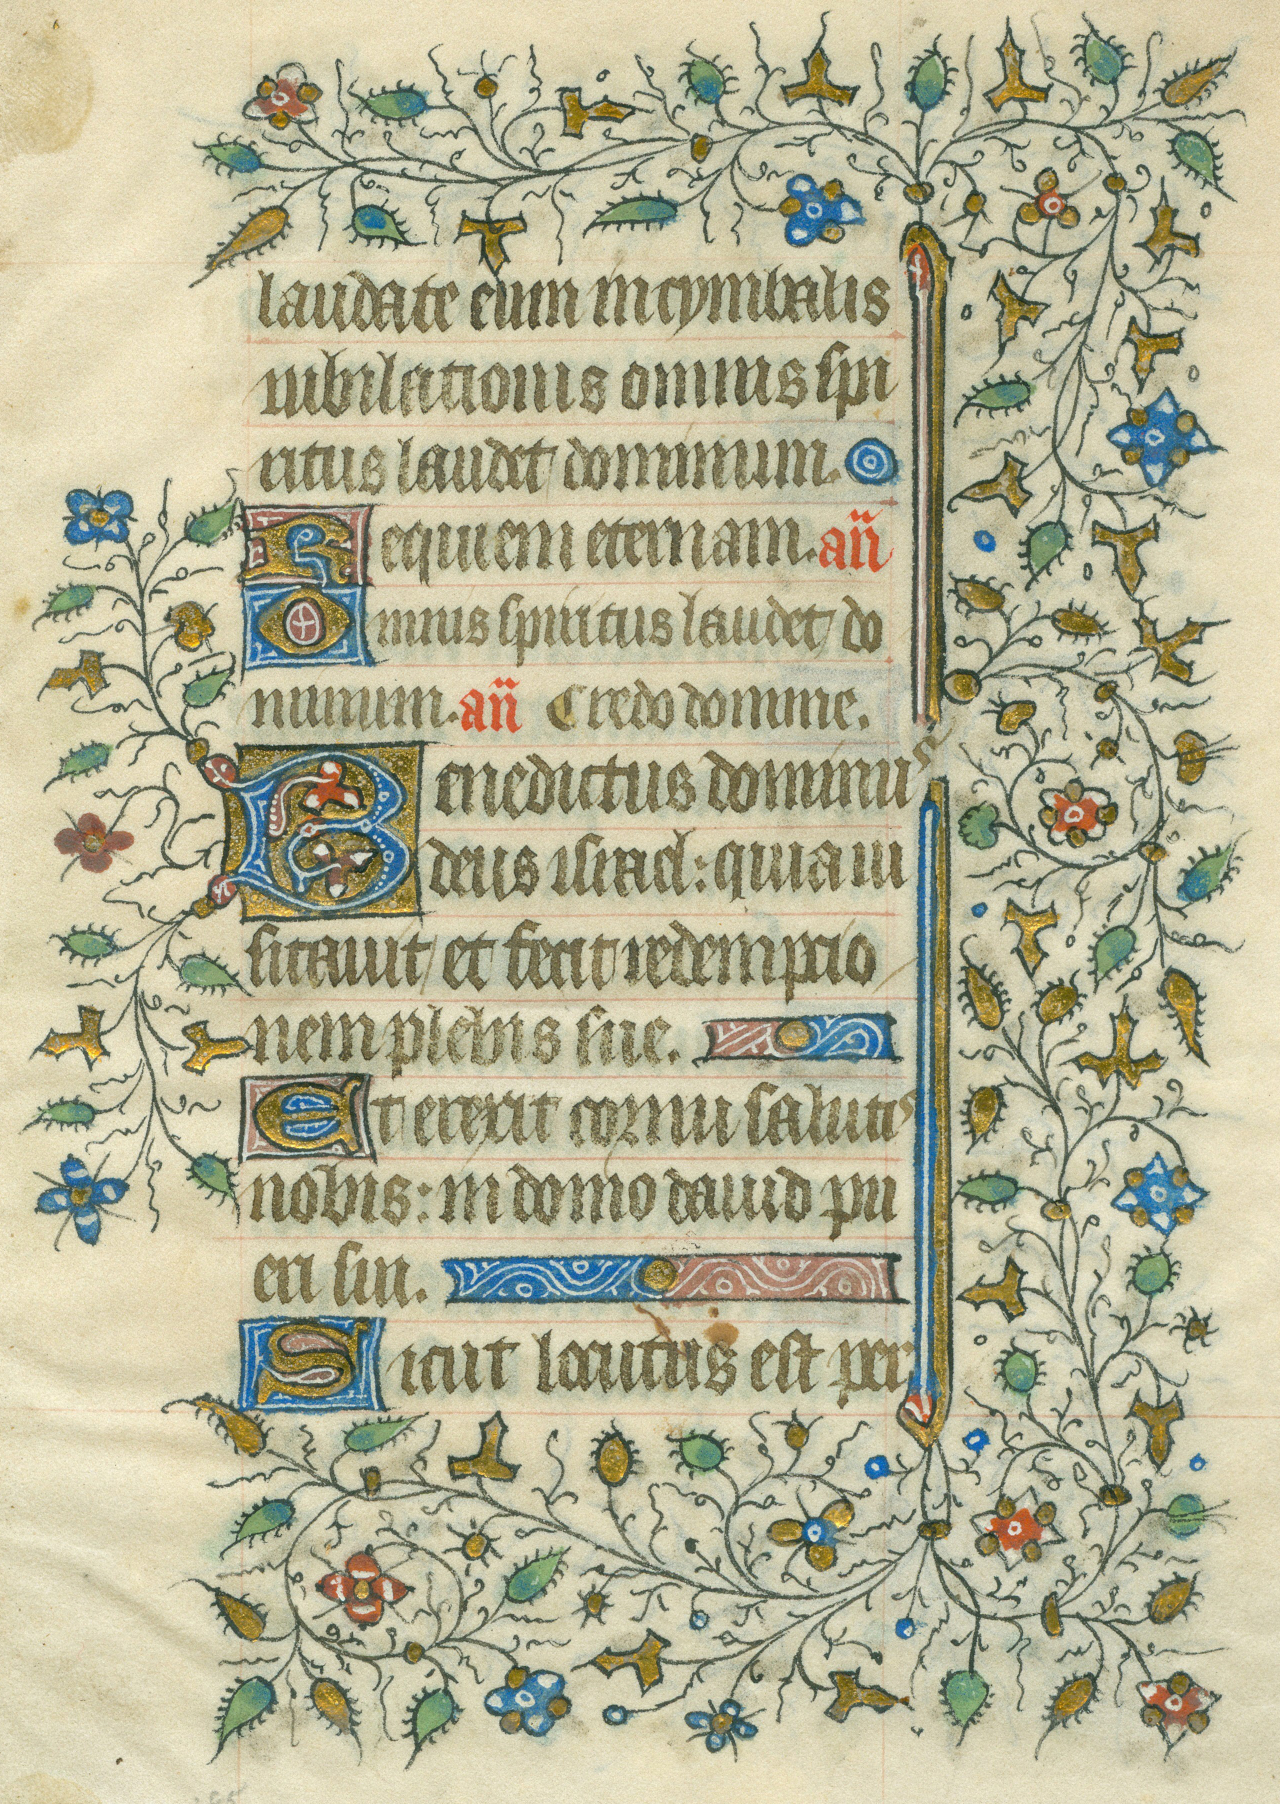 laudate eum in cymbalis
iubilationis omnis spi
ritus laudet dominum.
Requiem eternam. an̄
Omnis spiritus laudet do
minum. an̄ Credo domine.
Benedictus dominus
deus israel: quia ui
sitauit et fecit redemptio
nem plebis sue.
Et erexit cornu salutis
nobis: in domo dauid pu
eri sui.
Sicut locutus est per